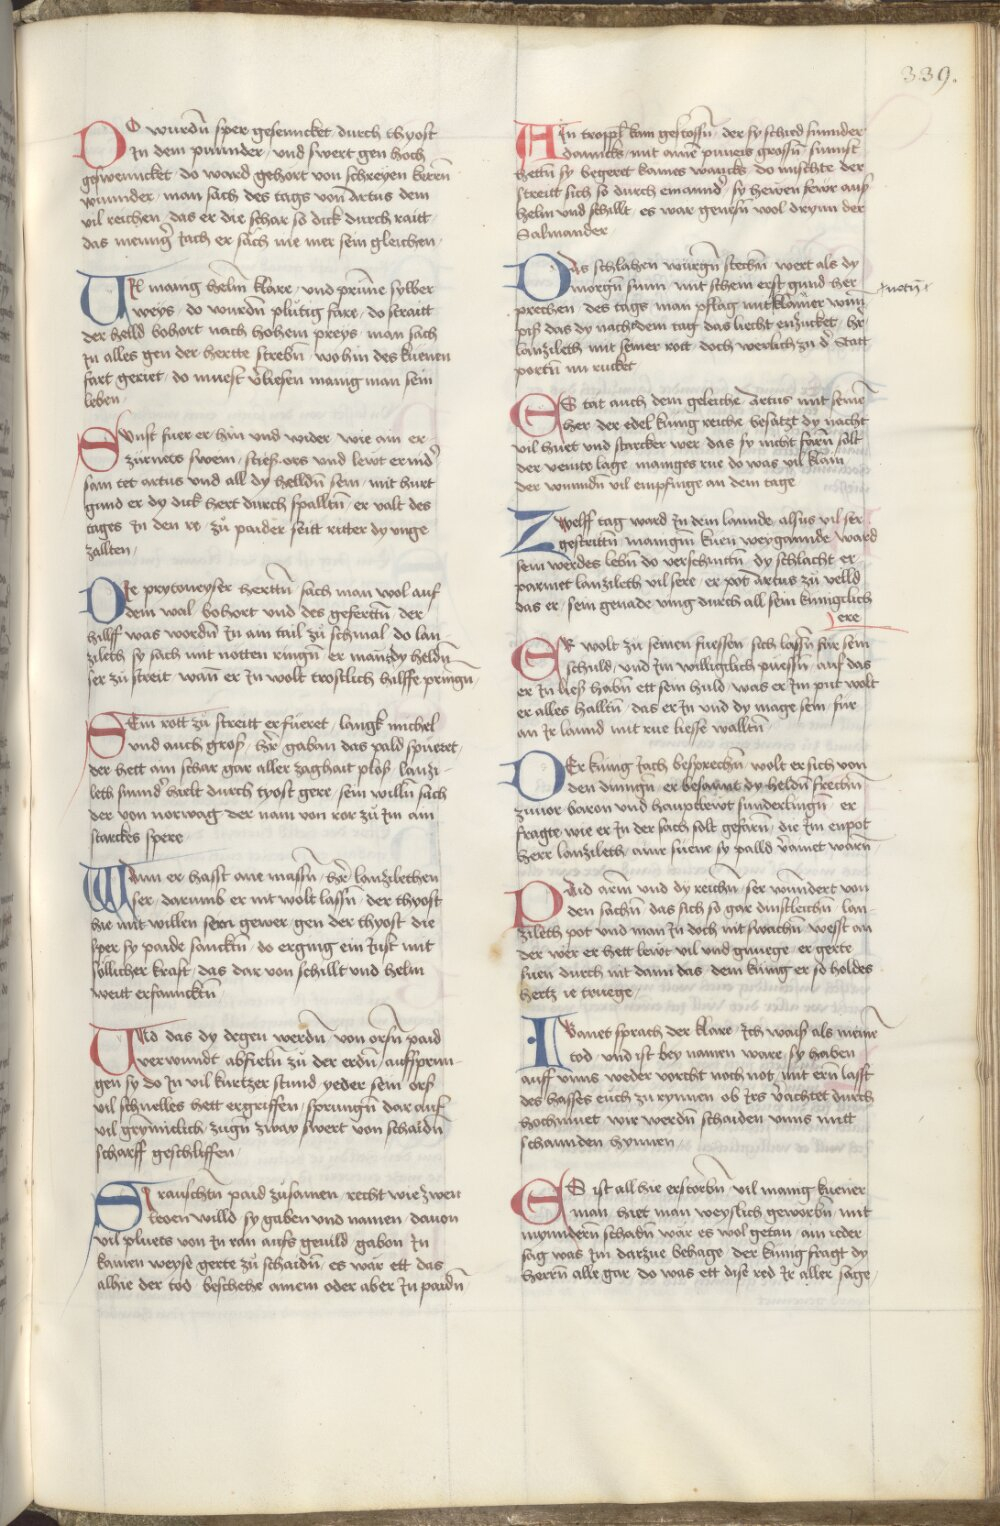 339.
DO wurdn̄ sper gesenncket / durch thyost
In dem puninder / vnd swert gen hoch
geswenncket / do ward gehort von schreyen kern̄
wunnder / man sach des tags von Artus dem
vil reichen / das er die schar so dick durch raitt
das menng̃ Jach er sach nie mer sein gleichen /
VIl manig helm̄ klare / vnd prünne sylber
weys / do wurdn̄ plůtig fare / do straitt
der helld bohort nach hohem preys / man sach
In alles gen der hertte strebn̄ / wohin des kuenen
fart geriet / do muest v̄liesen manig man sein
leben /
SVnst fuer er hin vnd wider / wie ain er
zürnets swein / stiess ors vnd lewt ernid̄
sam tet artus vnd all dy helldn̄ sein / mit hurt
gund er dy dick hert durch spalltn̄ / er valt des
tages In den re / zu paider seitt ritter dy vnge
zallten /
DIe prytoneyser herttn̄ / sach man wol auf
dem wal / bohort vnd des gefertn̄ / der
hillff was wordn̄ In ain tail zů schmal / do lan
zileth sy sach mit notten ringn̄ / er mant dy heldn̄
ser zů streit / wan̄ er In wolt trostlich hilffe pringn̄ /
SEin rott zů streitt er fueret / langk michel
vnd auch gross / hr̄ gaban das pald spueret /
der hett ain schar gar aller zaghait ploss / lanzi
leth sunnd̄ hielt durch tyost gere / sein willn̄ sach
der von norwag der nam von ror zů Im ain
starckes spere
WAnn er hasst ane massn̄ / hr̄ lanzilethen
ser / darumb er nit wolt lassn̄ / der thyost
hie mit willen sein gewer / gen der thyost die
sper sy paide sanncktn̄ / do erging ein Just mit
sollicher krafft / das dar von schillt vnd helm
weitt erfanncktn̄
VNd das dy degen werdn̄ / von orsn̄ paid
verwundt / abfieln̄ zů der erdn̄ / auffsprun
gen sy do In vil kurtzer stund / yeder sein ors
vil schnelles hett ergriffen / sprungn̄ dar auf
vil grymiclich / zugn̄ zway swert von schaidn̄
scharff geschliffen /
SI rauschtn̄ paid zůsamen / recht wie zwen
leoen willd / sy gaben vnd namen / dauon
vil pluets von In ran aufs gevild / gabon In
kainen weyse gerte zů schaidn̄ / es wär ett das
alhie der tod / beschehe ainem oder aber In paidn̄
AIn troppl̄ kam gestossn̄ / der sy schied sunnder
dannckes / mit aine puneis grossn̄ / sunnst
hettn̄ sy begeret kaines wancks / do mischte der
streitt sich so durch einannd̄ / sy hewen fewr auss
helm vnd schillt / es war genesn̄ wol drynn der
Salmander /
DAs schlahen würgn̄ stechn̄ / wert als dy
morgn̄ sunn / mit schein erst gund her
prechen / des tags man pflag mit klainer wun̄
piss das dy nach dem tag das liecht enzucket / hr̄
lanzileth mit seiner rott / doch werlich zu d̄ Statt
portn̄ nu rucket
ES tat auch dem geleiche / Artus mit seine̅
her / der edel kunig reiche / besatzt dy nacht
vil huet vnd starcker wer / das sy nicht farn̄ solt
der veinte lage / maniges rue do was vil klain
der wunndn̄ vil empfinge an dem tage
ZWelff tag ward In dem lannde / alsus vil ser
gestrittn̄ / manigm kuen weygannde / ward
sein werdes lebn̄ do verschnitn̄ / dy schlacht er
parmet lanzileth vil sere / er pot Artus zů velld
das er / sein genade ving durch all sein kunigklich
ere
ER wolt zů seinen fuessen / sich lassn̄ für sein
schuld / vnd Im williglich puessn̄ / auf das
er In liess habn̄ ett sein huld / was er Im put wolt
er alles halltn̄ / das er In vnd dy mage sein / für
an Ir lannd mit rue liesse walltn̄ /
DEr kunig Jach besprechn̄ / wolt er sich von
den dinngn̄ / er besannt dy heldn̄ frechn̄
zuuor baron vnd haupttlewt sunderlingn̄ / er
fragte wie er In der sach solt gefarn̄ / die Im enpot
herr lanzileth / ainr suene sy palld v̄ainet warn̄
PAid arm̄ vnd dy reichn̄ / ser wunndert von
den sachn̄ / das sich so gar dinstleichn̄ / lan
zileth pot vnd man In doch nit swachn̄ / wesst an
der wer / er hett lewt vil vnd gnuege / er gerte
suen durch nit dann das / dem kunig er so holdes
hertz ie truege /
IBanet sprach der klare / Ich waiss als meine̅
tod / vnd ist bey namen ware / sy haben
auff vnns weder vorcht noch not / mit ern̄ lasst
des hasses euch zu rynnen / ob Irs v̄achtet durch
hochmuet / wir werdn̄ schaiden vnns mitt
schannden hynnen /
ES ist all hie erstorbn̄ / vil manig kuener
man / hiet man weyslich geworbn̄ / mit
mynndern̄ schadn̄ wär es wol getan / ain ieder
sag was Im darzue behage / der kunig fragt dy
herrn̄ alle gar / do was ett dise red Ir aller sage /